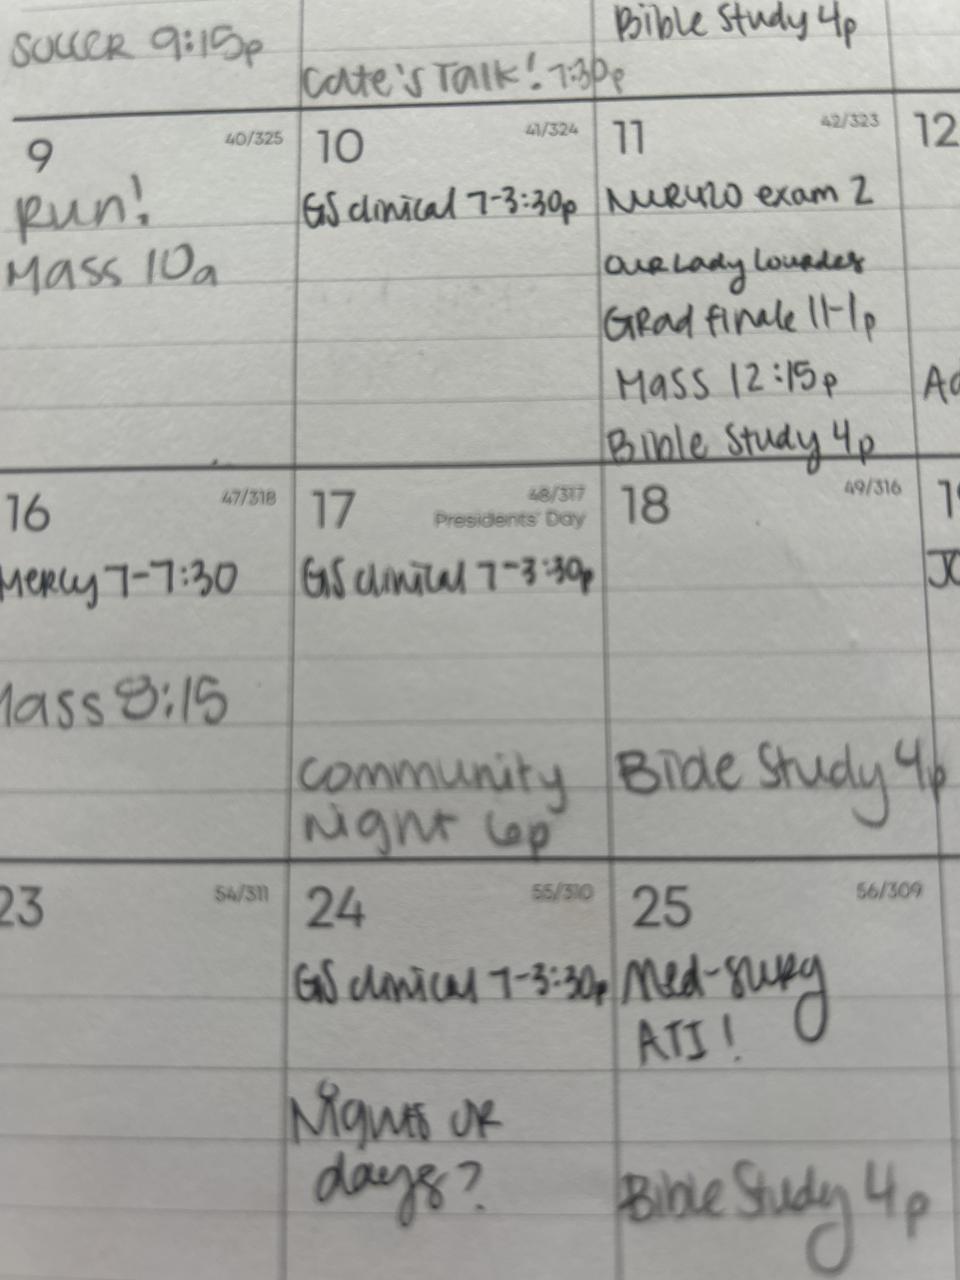 SOCCER 9:15p
Cate's Talk! 7:30p
Bible Study 4p
9 40/325
Run!
Mass 10a
10 41/324
GS clinical 7-3:30p
11 42/323
NUR420 exam 2
Our Lady Lourdes
Grad finale 11-1p
Mass 12:15p
Bible Study 4p
12
16 47/318
Mercy 7-7:30
Mass 8:15
17 48/317
Presidents' Day
GS clinical 7-3:30p
Community
Night 6p
18 49/316
Bible Study 4p
23 54/311
24 55/310
GS clinical 7-3:30p
Nights or
days?
25 56/309
Med-surg
ATI!
Bible Study 4p